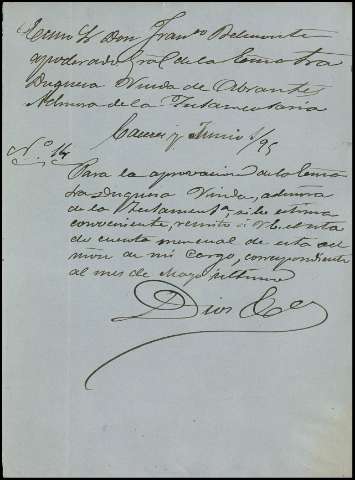 Excmo Sr Don Franco Belmonte
apoderado Gral de la Excma Sra
Duquesa Viuda de Abrantes
Admora de la Testamentaria
Caceres y Junio 1/95
No. 14
Para la aprovacion de la Excma
Sra Duquesa Viuda, admora
de la Testamenta, si lo estima
conveniente, remito á V. la
de cuenta mensual de esta ad
mon de mi cargo, correspondiente
al mes de Mayo ultimo
Dios